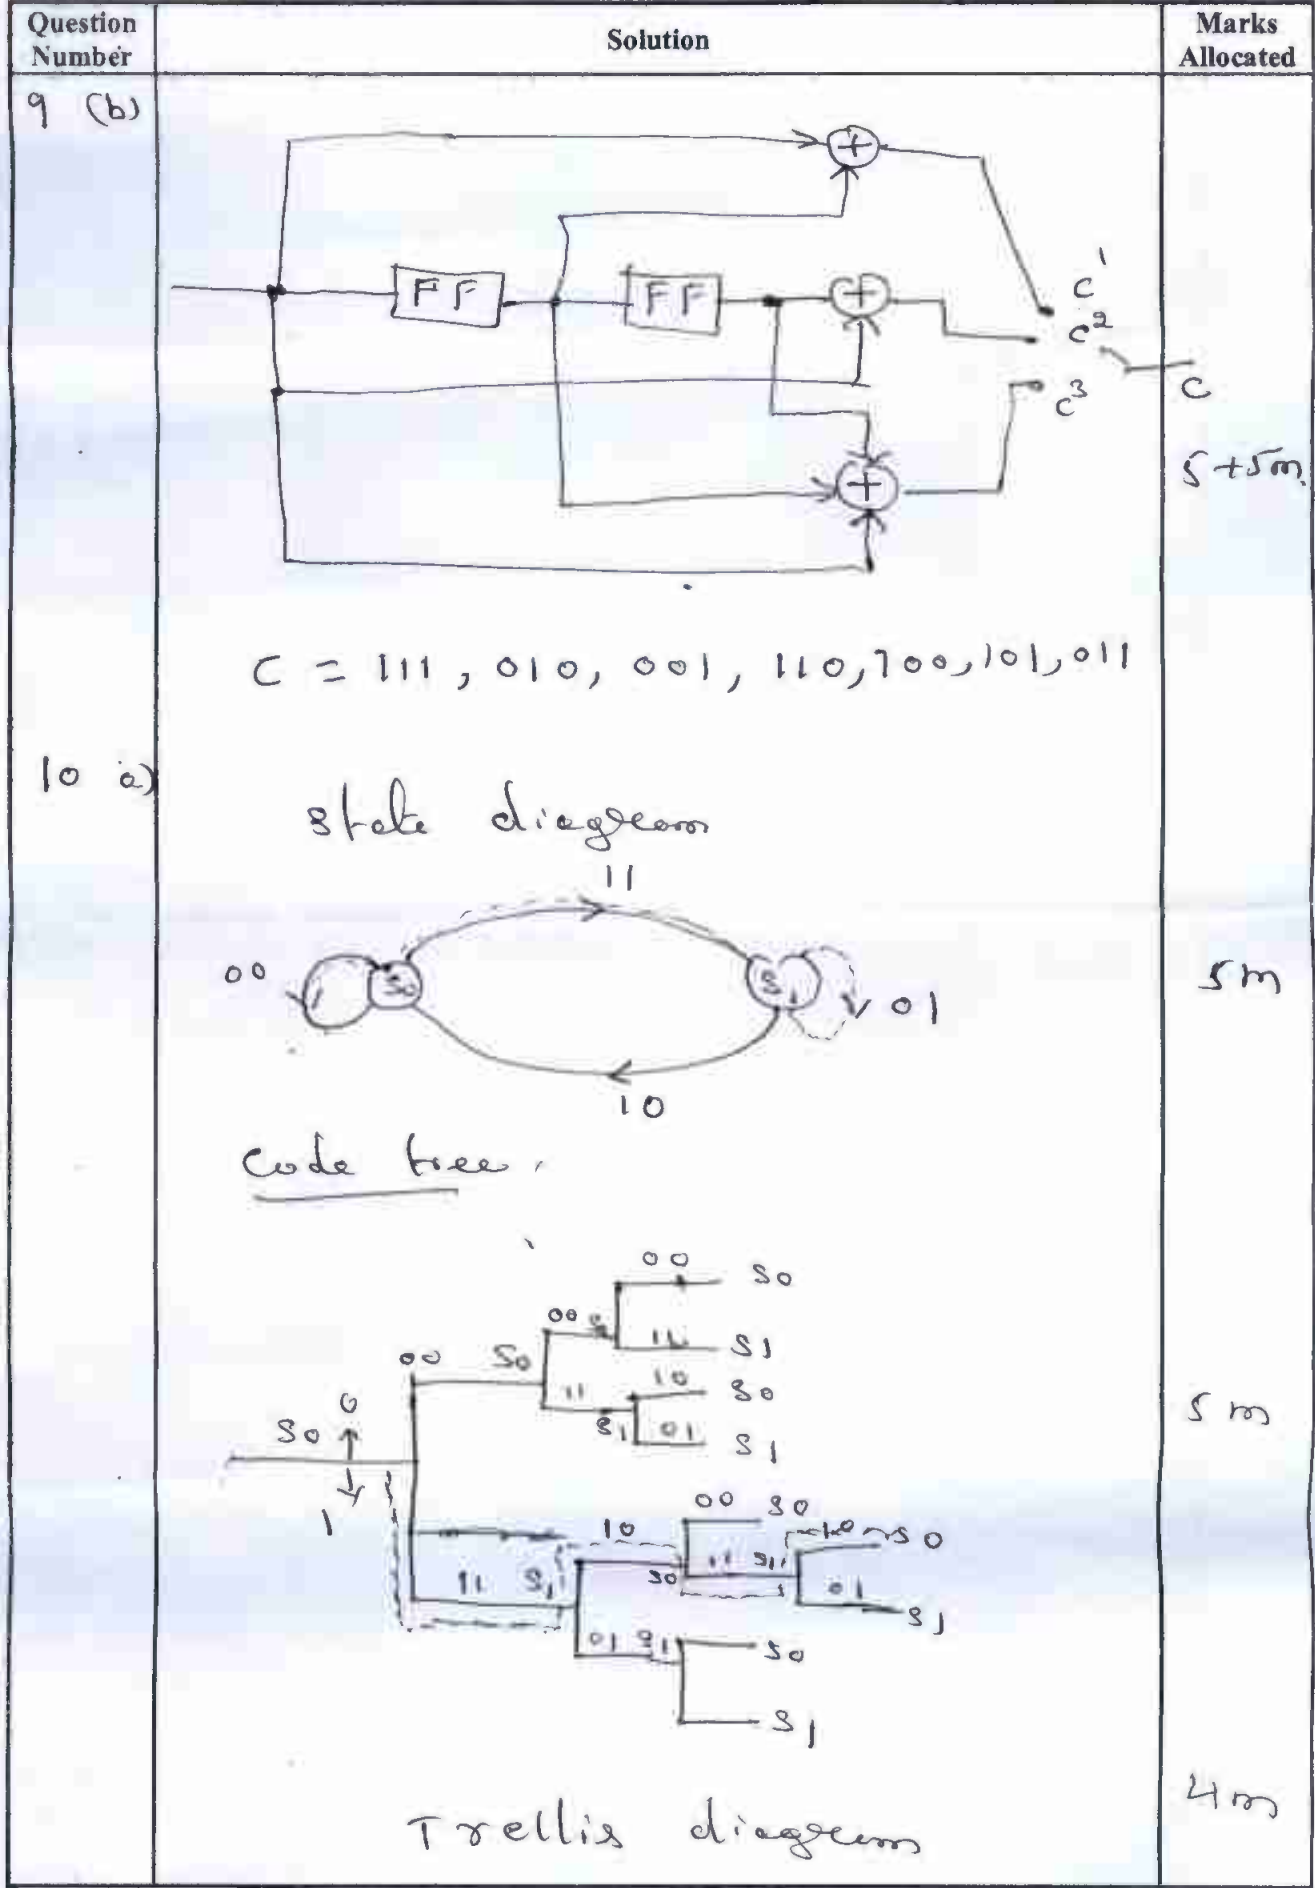 Question Number
Solution
Marks Allocated
9 (b)
+
FF
FF
+
C1
C2
C3
C
+
5+5m
C = 111, 010, 001, 110, 100, 101, 011
10 a)
State diagram
11
00
S0
S1
01
10
5m
Code tree.
00 S0
00 S0
11 S1
00 S0
10 S0
11
S1 01 S1
S0 0
1
5m
00 S0
10
10 S0
11 S1
S0 11 S1
01 S1
01 S1
S0
S1
Trellis diagram
4m